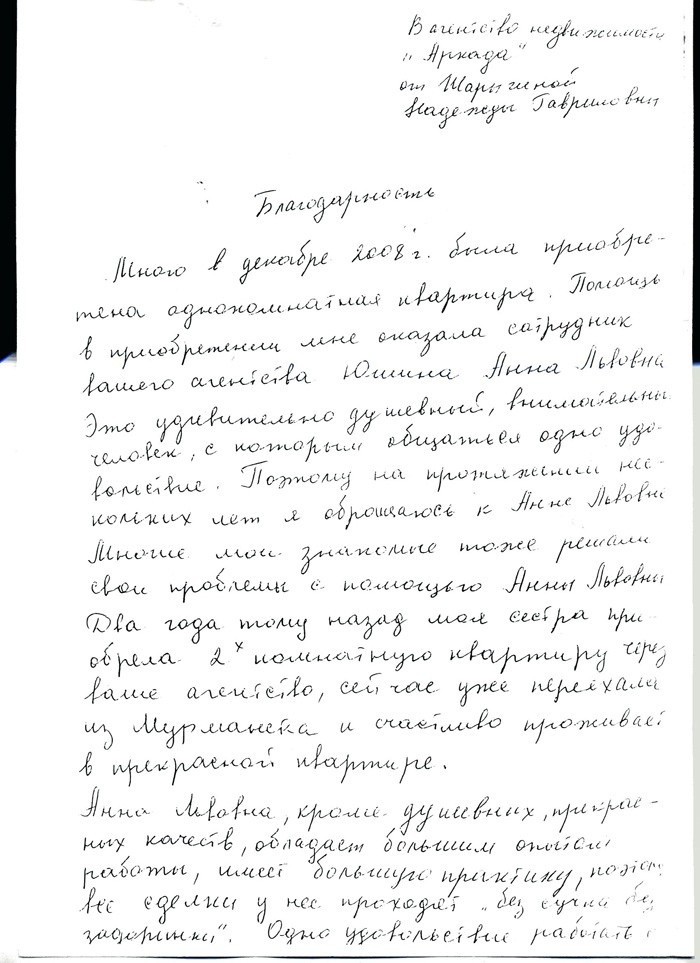 В агентство недвижимости
„Аркада"
от Шарыгиной
Надежды Гавриловны
Благодарность
Мною в декабре 2008 г. была приобре-
тена однокомнатная квартира. Помощь
в приобретении мне оказала сотрудник
вашего агентства Юшина Анна Львовна
Это удивительно душевный, внимательны
человек, с которым общаться одно удо-
вольствие. Поэтому на протяжении нес-
кольких лет я обращаюсь к Анне Львовне
Многие мои знакомые тоже решали
свои проблемы с помощью Анны Львовны
Два года тому назад моя сестра при-
обрела 2х комнатную квартиру через
ваше агентство, сейчас уже переехала
из Мурманска и счастливо проживает
в прекрасной квартире.
Анна Львовна, кроме душевных, прекрас-
ных качеств, обладает большим опытом
работы, имеет большую практику, поэтому
все сделки у нее проходят „без сучка без
задоринки". Одно удовольствие работать с